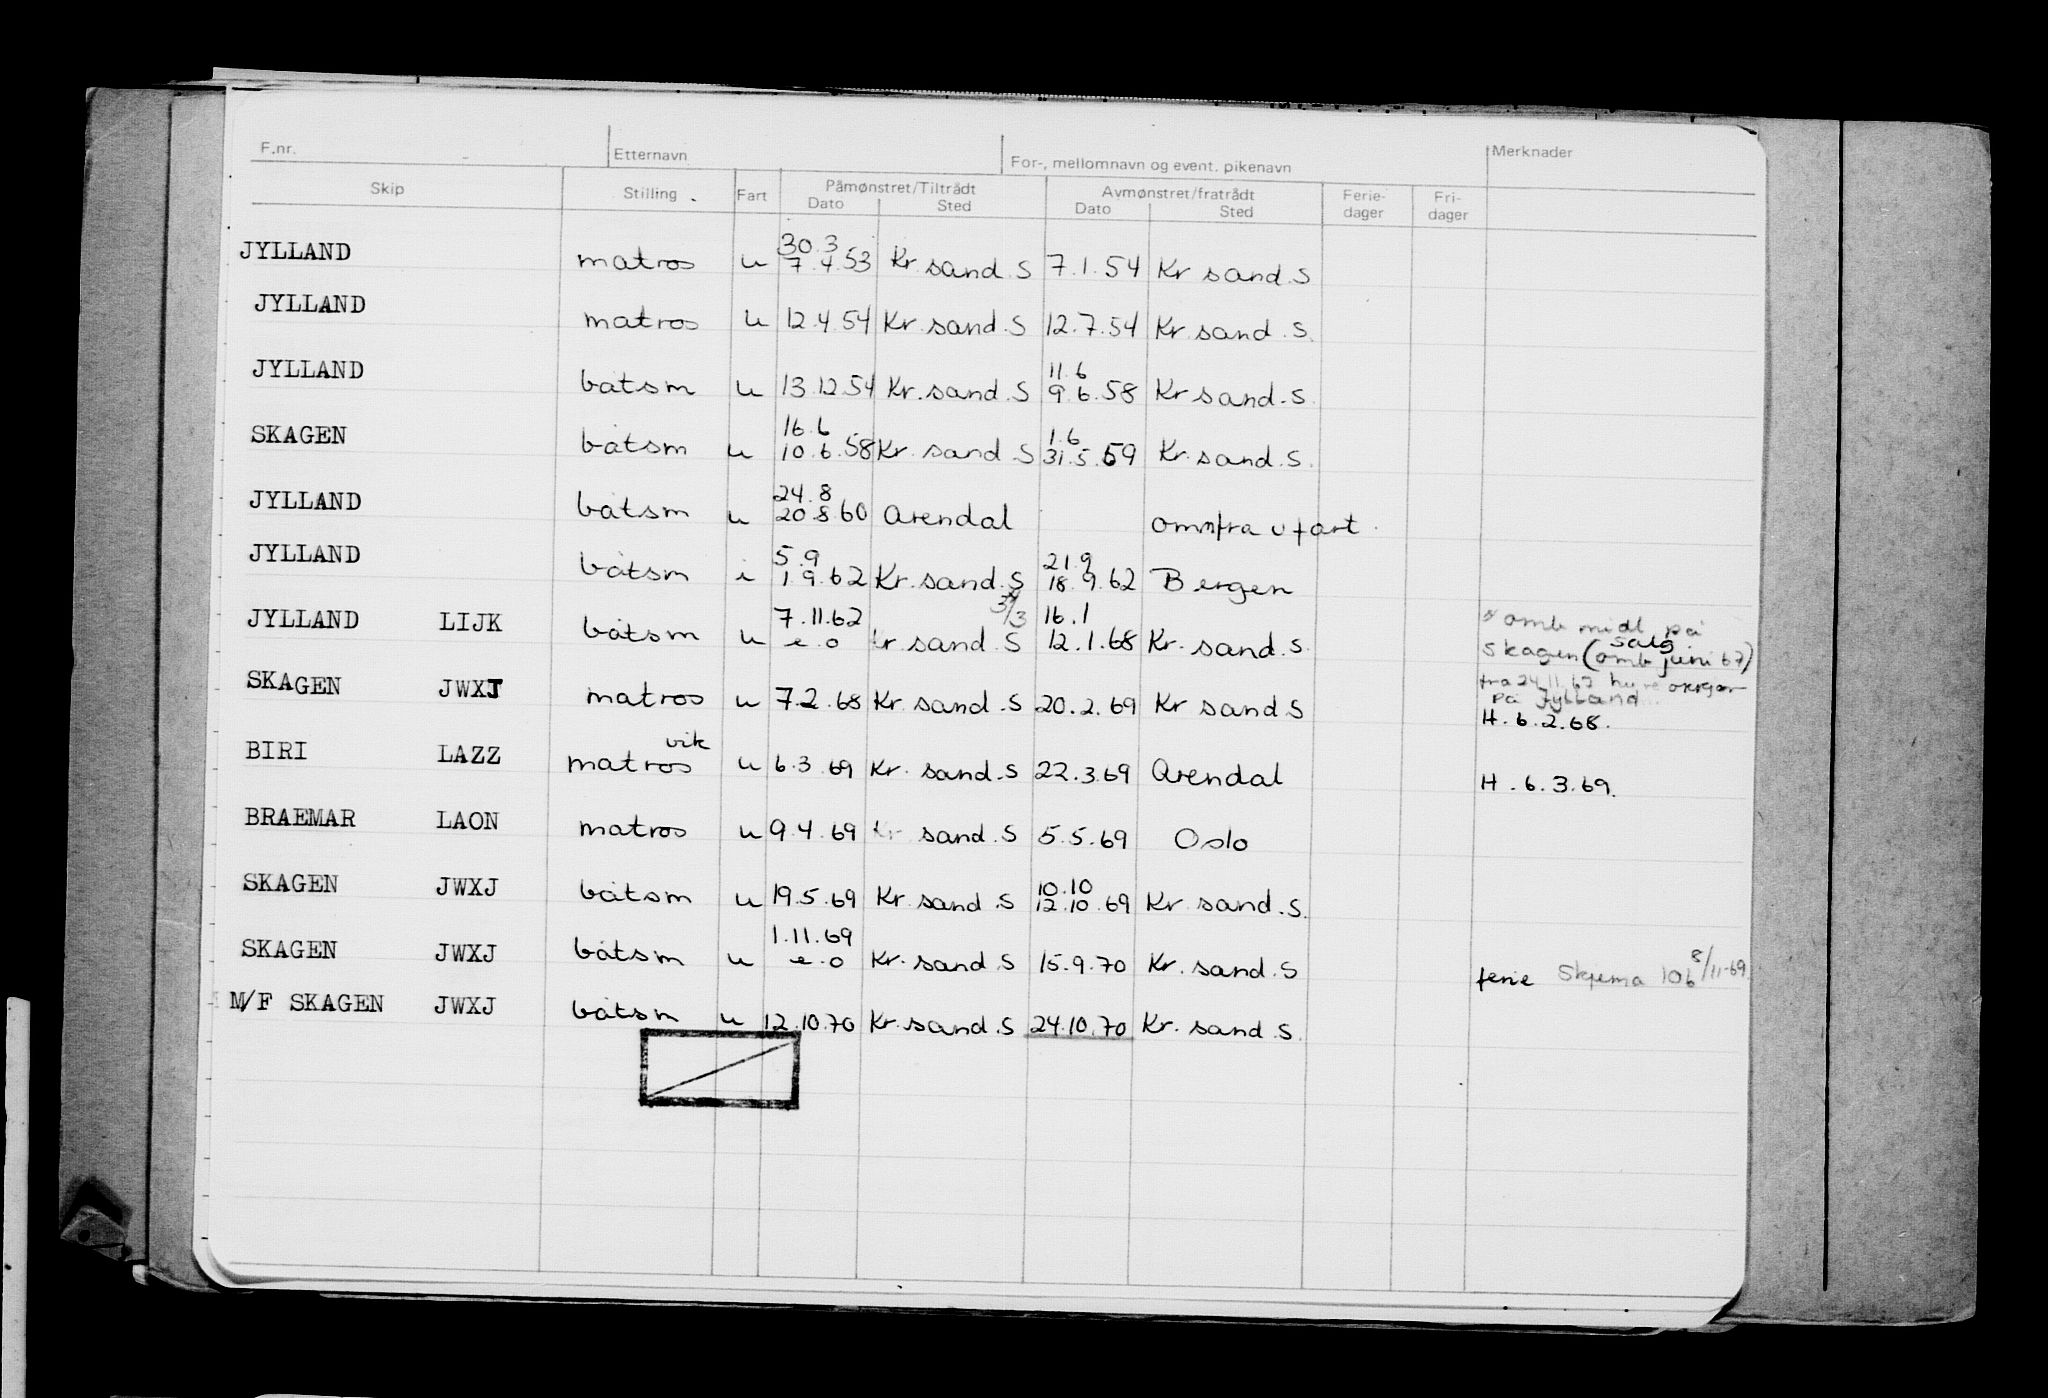 F.nr. Etternavn For-, mellomnavn og event. pikenavn Merknader
Skip Stilling Fart Påmønstret/Tiltrådt Avmønstret/fratrådt Ferie-dager Fri-dager
Dato Sted Dato Sted
30.3
JYLLAND matros u 7.4.53 Kr.sand.S 7.1.54 Kr sand.S
JYLLAND matros u 12.4.54 Kr.sand.S 12.7.54 Kr sand.S.
11.6
JYLLAND båtsm u 13.12.54 Kr.sand.S 9.6.58 Kr sand.S.
16.6 1.6
SKAGEN båtsm u 10.6.58 Kr.sand.S 31.5.59 Kr.sand.S.
24.8
JYLLAND båtsm u 20.8.60 Arendal omm fra u fart.
5.9 21.9
JYLLAND båtsm i 1.9.62 Kr.sand.S 18.9.62 Bergen
7.11.62 16.1 omb midl på
JYLLAND LIJK båtsm u e.o Kr sand.S 12.1.68 Kr.sand.S. Skagen (omb salg juni 67)
fra 24.11.67
på Jylland
SKAGEN JWXJ matros u 7.2.68 Kr sand.S 20.2.69 Kr sand S H.6.2.68.
vik
BIRI LAZZ matros u 6.3.69 Kr.sand.S 22.3.69 Arendal H.6.3.69.
BRAEMAR LAON matros u 9.4.69 Kr sand.S 5.5.69 Oslo
10.10
SKAGEN JWXJ båtsm u 19.5.69 Kr sand.S 12.10.69 Kr sand.S.
1.11.69
SKAGEN JWXJ båtsm u e.o Kr.sand.S 15.9.70 Kr.sand.S ferie Skjema 106 8/11-69.
M/F SKAGEN JWXJ båtsm u 12.10.70 Kr.sand.S 24.10.70 Kr.sand.S.